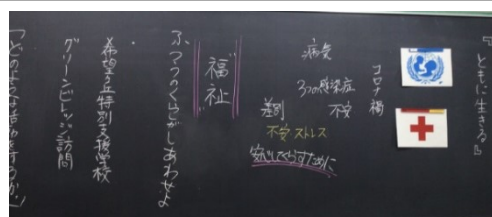 『ともに生きる』
コロナ禍
病気
3つの感染症
不安
差別
不安 ストレス
安心してくらすために
福祉
ふつうのくらしがしあわせよ
希望ヶ丘特別支援学校
グリーンビレッジ訪問